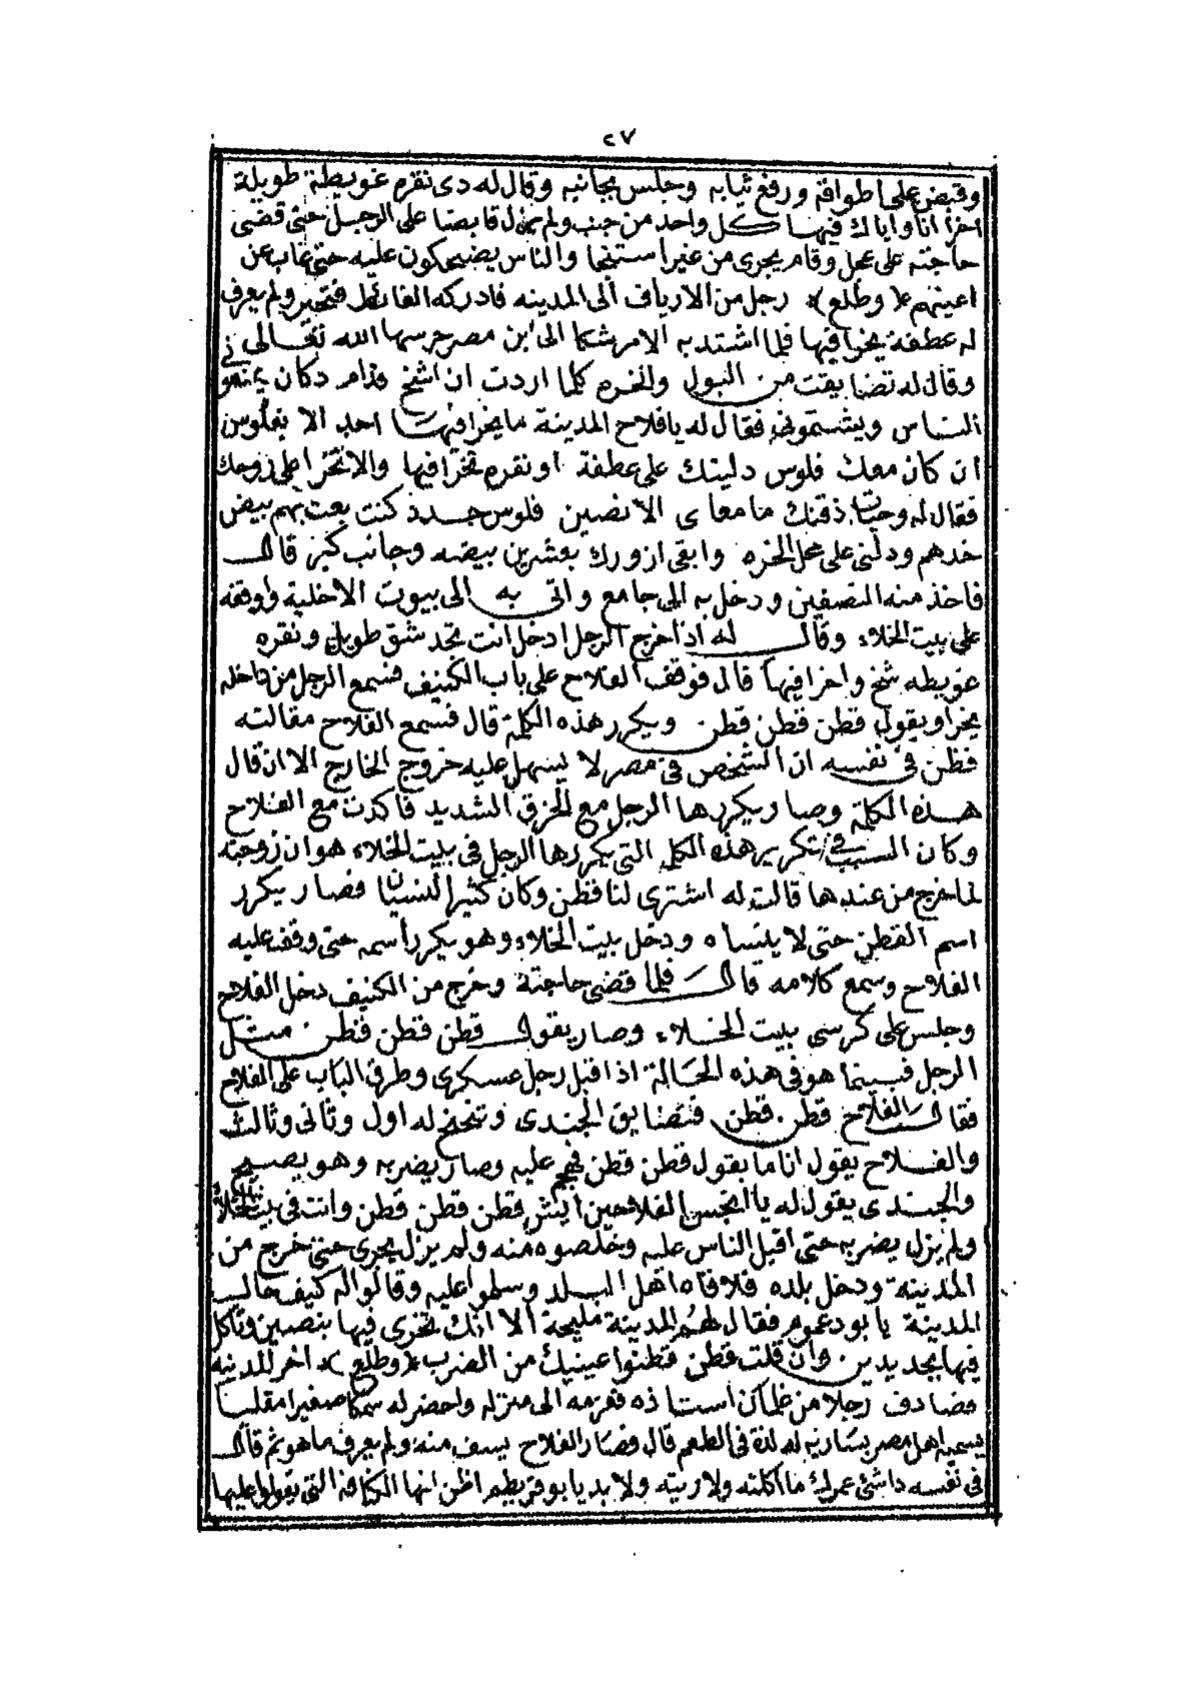 ٢٧
وقبض على اطواقه ورفع ثيابه وجلس بجانبه وقال له دى نقره غويطة طويلة
اخرا انا واياك فيها كل واحد من جنب ولم يزل قابضا على الرجل حتى قضى
حاجته على عجل وقام يجرى من غير استنجا والناس يضحكون عليه حتى غاب عن
اعينهم (وطلع) رجل من الارياف الى المدينه فادركه الغائط فتحير ولم يعرف
له عطفة يخرا فيها فلما اشتد به الامر شكا الى ابن مصر حرسها الله تعالى
وقال له تضايقت من البول والخره كلما اردت ان اشخ قدام دكان
الناس ويشتمونى فقال له يا فلاح المدينة ما يخرا فيها احد الا بفلوس
ان كان معك فلوس دليتك على عطفة او نقره تخرا فيها والا تخرا على روحك
فقال له وحيات ذقنك ما معاى الا نصين فلوس جدد كنت بعت بهم بيض
خدهم ودلنى على محل الخره وابقى ازورك بعشرين بيضه وجانب كبر قال
فاخذ منه النصفين ودخل به الى جامع واتى به الى بيوت الاخلية واوقفه
على بيت الخلاء وقال له اذا خرج الرجل ادخل انت تجد شق طويل ونقره
غويطه شخ واخرا فيها قال فوقف الفلاح على باب الكنيف فسمع الرجل من داخله
يخرا ويقول قطن قطن قطن ويكرر هذه الكلمة قال فسمع الفلاح مقالته
فظن فى نفسه ان الشخص فى مصر لا يسهل عليه خروج الخارج الا ان قال
هذه الكلمة وصار يكررها الرجل مع الحزق الشديد فاكدت مع الفلاح
وكان السبب فى تكرير هذه الكلمه التى يكررها الرجل فى بيت الخلاء هو ان زوجته
لما خرج من عندها قالت له اشترى لنا قطن وكان كثير النسيان فصار يكرر
اسم القطن حتى لا ينساه ودخل بيت الخلاء وهو يكرر اسمه حتى وقف عليه
الفلاح وسمع كلامه قال فلما قضى حاجته وخرج من الكنيف دخل الفلاح
وجلس على كرسى بيت الخلاء وصار يقول قطن قطن قطن مثل
الرجل فبينما هو فى هذه الحالة اذ اقبل رجل عسكرى وطرق الباب على الفلاح
فقال الفلاح قطن قطن فتضايق الجندى وتنحنح له اول وثانى وثالث
والفلاح يقول انا ما بقول قطن قطن فهجم عليه وصار يضربه وهو يصيح
والجندى يقول له يا انجس الفلاحين ايش قطن قطن قطن وانت فى بيت الخلاء
ولم يزل يضربه حتى اقبل الناس عليه وخلصوه منه ولم يزل يجرى حتى خرج من
المدينه ودخل بلده فلاقاه اهل البلد وسلموا عليه وقالوا له كيف حال
المدينة يا بو دعموم فقال لهم المدينة مليحة الا انك تخرى فيها بنصين وتاكل
فيها بجديدين وان قلت قطن قطنوا عينيك من الضرب (وطلع) اخر المدينه
فصادف رجلا من غلمان استاذه فعزمه الى منزله واحضر له سمكا صغيرا مقليا
يسميه اهل مصر بساريه له لذة فى الطعم قال فصار الفلاح يسف منه ولم يعرف ما هو ثم قال
فى نفسه داشئ عمرك ما اكلته ولا ريته ولا بد يا بو قريطم اظن انها الكنافه التى يقولوا عليها